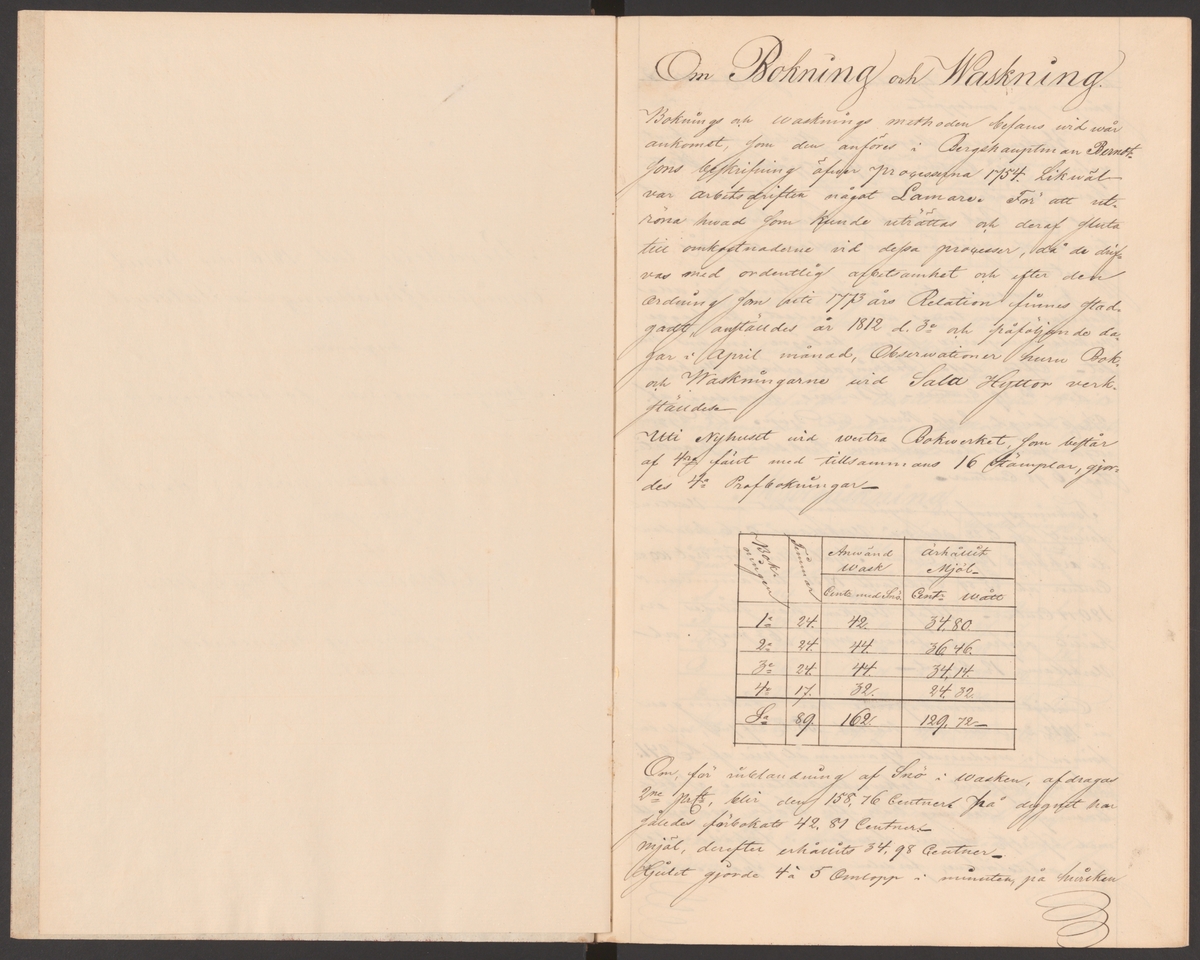 Om Bokning och Waskning.
Boknings och wasknings methoden befans wid wår
ankomst, som den anföres i Bergshauptman Berndt-
sons beskrifning öfwer processerna 1754. Likwäl
var arbetsdriften något Lamare. För att ut-
röna hwad som kunde uträttas och deraf sluta
till omkostnaderne vid dessa processer, då de drif-
vas med ordentlig arbetsamhet och efter den
ordning som uti 1773 års Relation finnes stad-
gadt, anställdes år 1812 d. 3e och påföljande da-
gar i April månad, Observationer huru Bok-
och Waskningarne wid Sala Hyttor verk-
ställdes
Uti Nyhuset wid westra Bokwerket, som består
af 4ra sänt med tillsammans 16 stämplar, gjor-
des 4a Profbokningar
Bok-
ningen
Timmar
Anwänd
wask
Erhållit
Mjöl
Cent. med Snö
Centr wått
1a 24. 42. 34,80.
2a 24. 44. 36,46.
3e 24. 44. 34,14.
4e 17. 32. 24,32.
Sa 89. 162. 129,72
Om, för inblandning af Snö i wasken, afdragas
2ne pCt, blir den 158,76 Centner på dygnet har
således förbokats 42,81 Centner.
mjöl, derefter erhållits 34,98 Centner
Hjulet gjorde 4 à 5 Omlopp i minuten, på hwilken